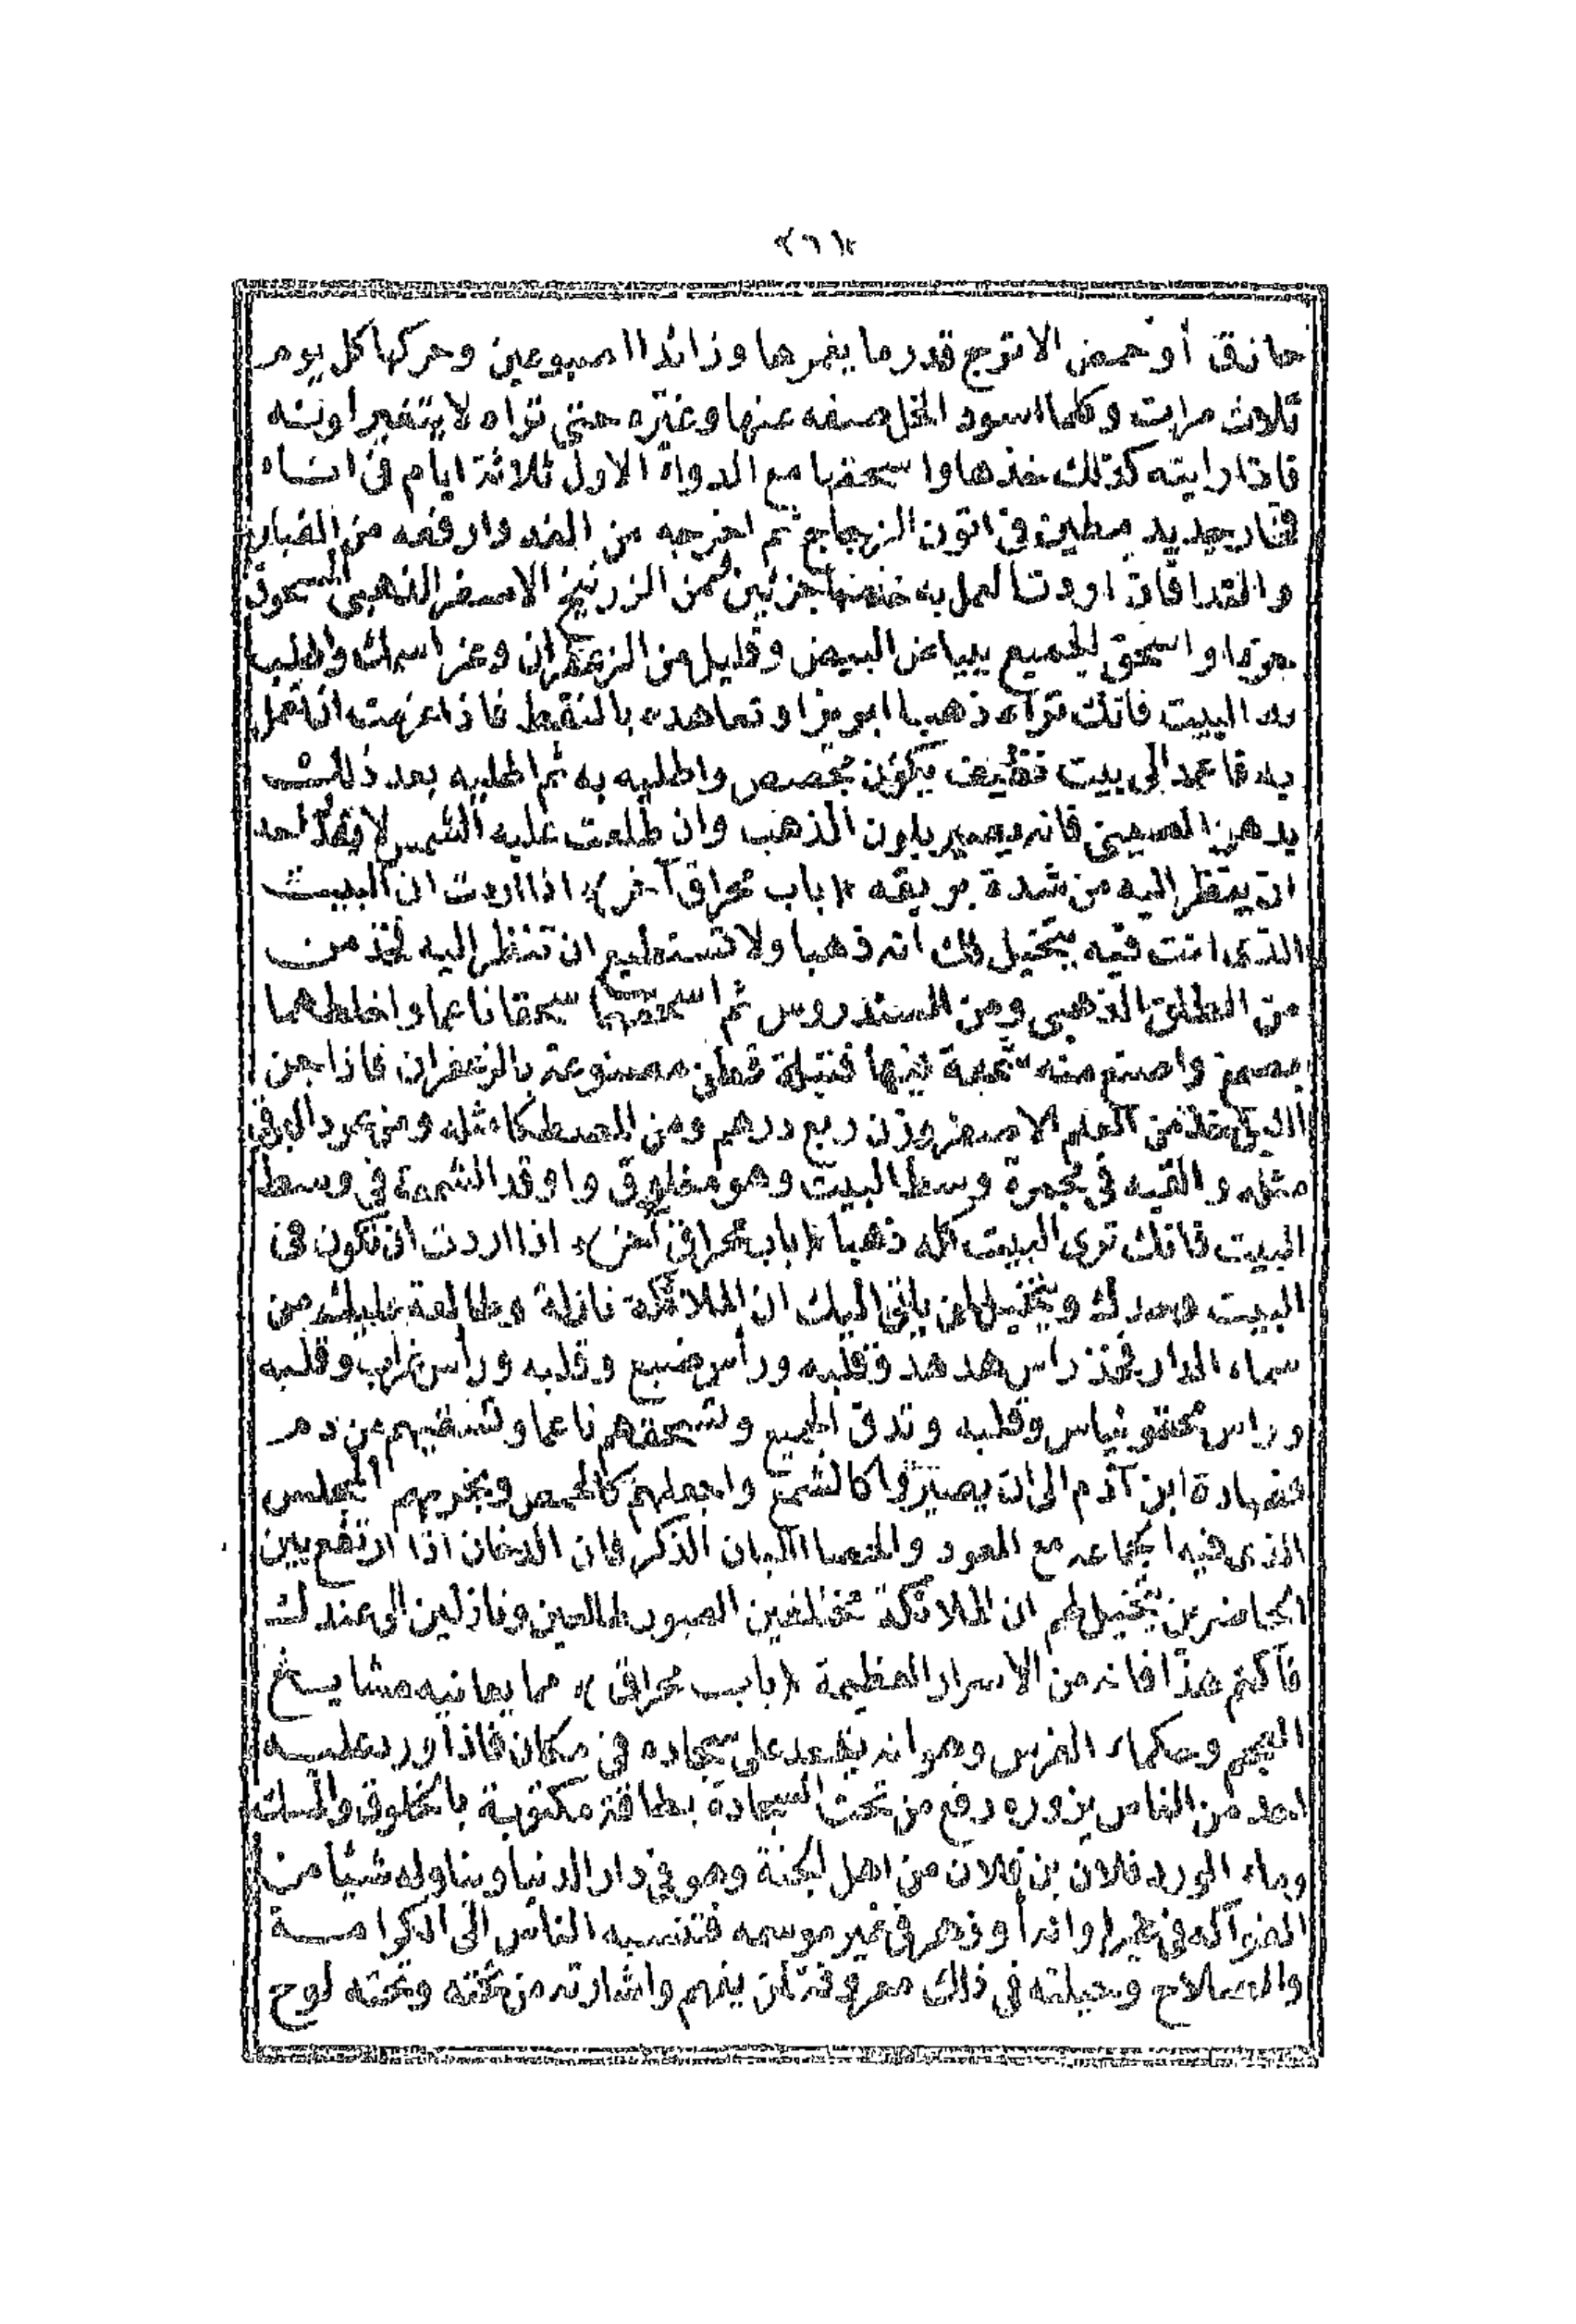 ﴿٦١﴾
حاذق أو حمض الاترج قدر ما يغمرها وزائد اصبوعين وحركها كل يوم
ثلاث مرات وكلما اسود الخل صفه عنها وغيّره حتى تراه لا يتغير لونه
فاذا رايته كذلك خذها واسحقها مع الدواة الاول ثلاثة ايام فى اناه
فخار جديد مطين فى اتون الزجاج ثم اخرجه من الغد وارفعه من الغبار
والندا فاذا اردت العمل به خذ منها جزئين ومن الزرنيخ الاصفر الذهبى المسحوق
جزوا واسحق الجميع ببياض البيض وقليل من الزعفران وغراسمك واطلب
به البيت فانك تراه ذهبا ابريزا وتعاهده بالنقط فاذا عزمت ان تعمل
به فاعمد الى بيت نظيف يكون مجصص واطليه به ثم اطليه بعد ذلك
بدهن الصينى فانه يصير بلون الذهب وان طلعت عليه الشمس لا يقدر احد
ان ينظر اليه من شدة بريقه ﴿باب محراق آخر﴾ اذا اردت ان البيت
الذى انت فيه يتخيل لك انه ذهبا ولا تستطيع ان تنظر اليه فخذ من
من الطلق الذهبى ومن السندروس ثم اسحقهما سحقا ناعما واخلطهما
بصمغ واصنع منه شمعة فيها فتيلة قطن مصنوعة بالزعفران فاذا جن
الليل خذ من العلم الاصفر وزن ربع درهم ومن المصطكا مثله ومن
مثله والقيه فى مجمرة وسط البيت وهو مغلوق واوقد الشمعة فى وسط
البيت فانك ترى البيت كله ذهبا ﴿باب محراق آخر﴾ اذا اردت ان تكون فى
البيت وحدك ويتخيل لمن ياتى اليك ان الملائكة نازلة وطالعة عليك من
سماء الدار فخذ راس هدهد وقلبه ورأس ضبع وقلبه ورأس غراب وقلبه
وراس وقلبه وتدق الجميع وتسحقهم ناعما وتسقيهم من دم
فصادة ابن آدم الى ان يصيروا كالشمع واجعلهم كالحمص وبخر بهم المجلس
الذى فيه الجماعه مع العود والحصا البان الذكر فان الدخان اذا ارتفع بين
الحاضرين يتخيل لهم ان الملائكة مختلفين الصور طالعين ونازلين الى عندك
فاكتم هذا فانه من الاسرار العظيمة ﴿باب محراق﴾ مما يعانيه مشايخ
العجم وحكماء الفرس وهو انه يقعد على سجاده فى مكان فاذا ورد عليه
احد من الناس يزوره رفع من تحت السجادة بطاقة مكتوبة بالخلوق والمسك
وماء الورد فلان بن فلان من اهل الجنة وهو فى دار الدنيا ويناوله شيئا من
الفواكه فى غير اوانه أو زهر فى غير موسمه فتنسبه الناس الى الكرامة
والصلاح وحيلته فى ذلك معروفة لمن يفهم واشارته من تحته وتحته لوح